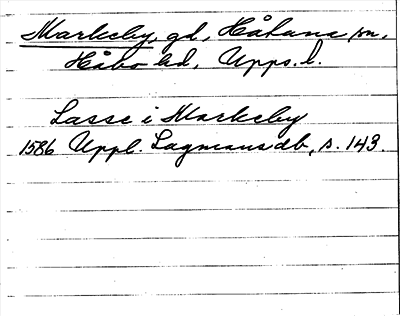 Markeby, gd, Håtuna sn,
Håbo hd, Upps. l.
Lasse i Markeby
1586 Uppl. Lagmansdb, s. 143.